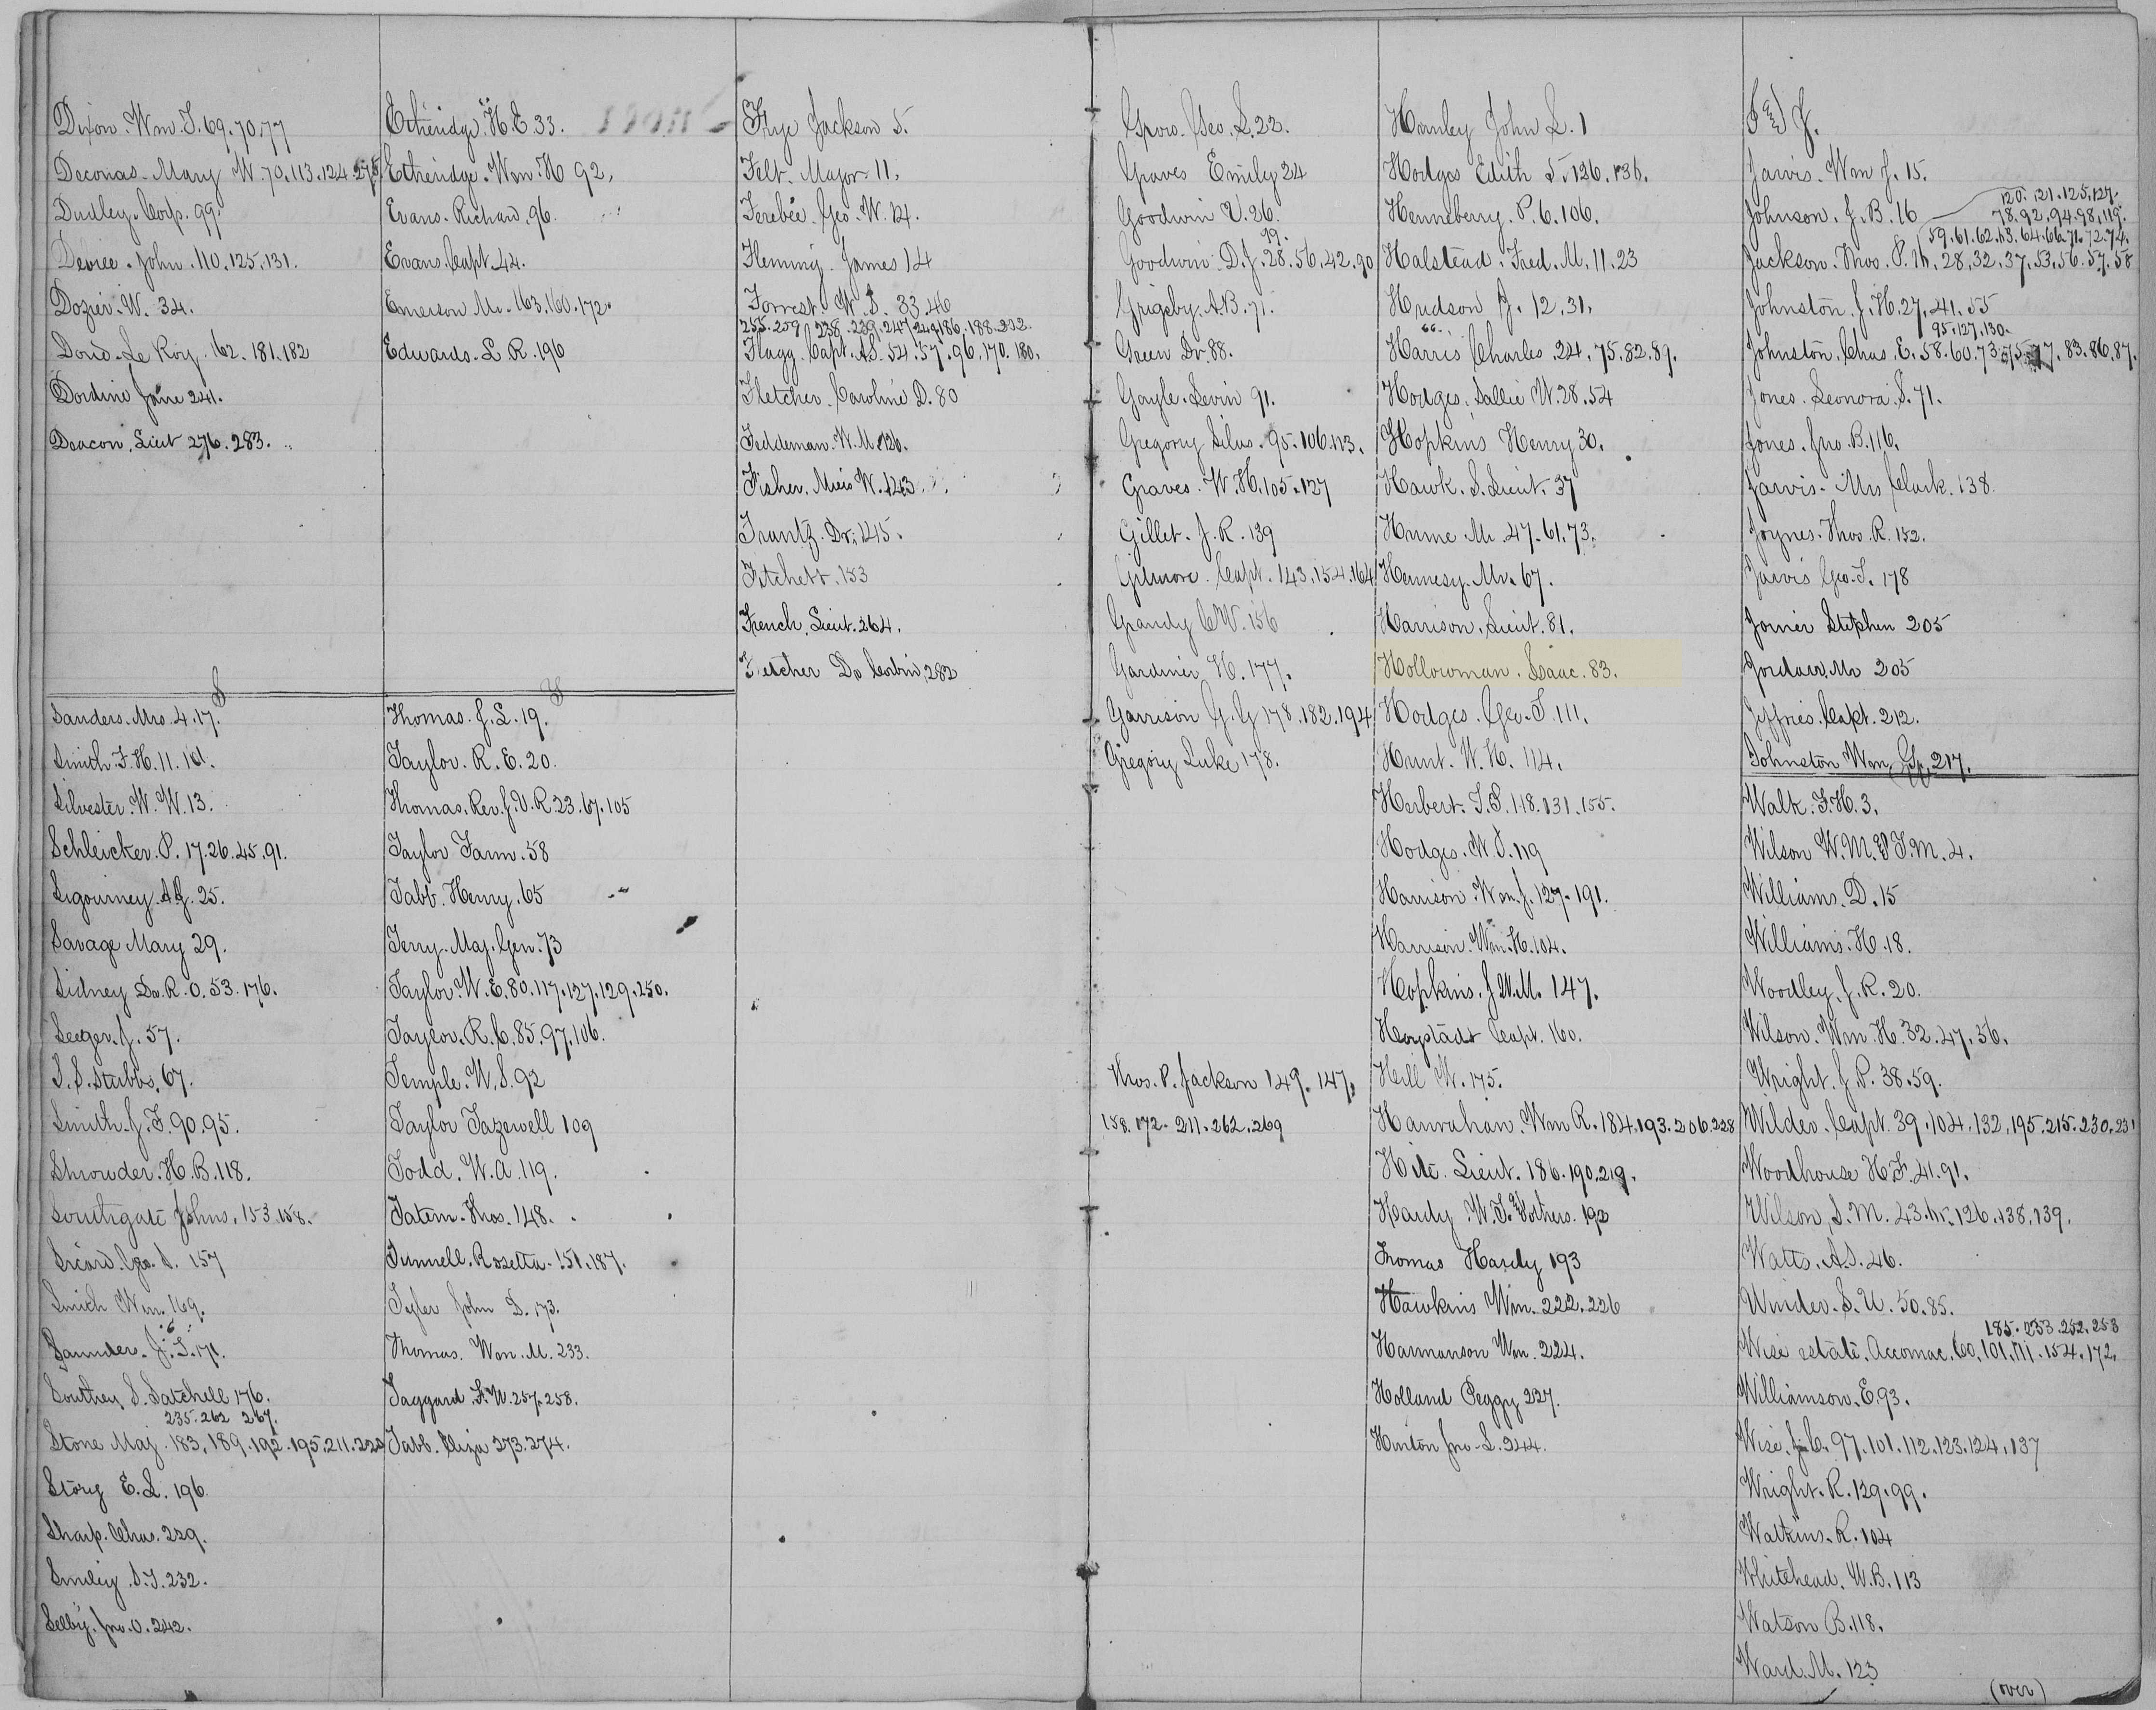 Dixon. Wm. T. 69. 70. 77
Deconas. Mary W. 70. 113. 124. 275
Dudley. Corp. 99.
Devree. John. 110. 125. 131.
Dozier. W. 34.
Doud. Le Roy. 62. 181. 182
Dordine Jane 241.
Deacon. Lieut 276. 283.
S
Sanders. Mrs. 4. 17.
Smith. F. H. 11. 101.
Silvester. W. W. 13.
Schleicker. P. 17. 26. 45. 91.
Sigourney. A. J. 25.
Savage Mary 29.
Sidney Dr. R. O. 53. 176.
Seeger. J. 57.
S. S. Stubbs. 67.
Smith. J. T. 90. 95.
Shrouder. H. B. 118.
Southgate Johns. 153. 158.
Sicard. Geo. S. 157
Smith Wm. 169.
Saunders. J. T. 171.
Southey S. Satchell 176.
235. 262 267.
Stone Maj. 183. 189. 192. 195. 211. 222
Story E. L. 196.
Sharp. Chas. 229.
Smiley. S. T. 232.
Selby. Jno. O. 242.
Etheridge. H. E. 33.
Etheridge. Wm. H 92.
Evans. Richard. 96.
Evans. Capt. 44.
Emerson Mr. 163. 160. 172.
Edwards. L R. 196
T
Thomas. J. L. 19.
Taylor. R. E. 20.
Thomas. Rev. J. V. R. 23. 67. 105
Taylor Farm. 58
Tabb. Henry. 65
Terry. Maj. Gen. 73
Taylor. W. E. 80. 117. 127. 129. 250.
Taylor. R. C. 85. 97. 106.
Temple. W. S. 92
Taylor Tazewell 109
Todd. W. A. 119.
Tatem. Thos. 148.
Tunnell. Rosetta. 151. 187.
Tyler John D. 173.
Thomas. Wm. M. 233.
Taggard. F. W. 257. 258.
Tabb. Eliza 273. 274.
Frye Jackson 5.
Felt. Major 11.
Ferebee. Geo. W. 12.
Fleming. James 14
Forrest. W. S. 33. 46
255. 259 238. 239. 247 249. 186. 188. 232.
Flagg. Capt. A. S. 54. 57. 96. 170. 180.
Fletcher. Caroline D. 80
Feddeman. W. M. 126.
Fisher. Miers W. 143.
Frantz. Dr. 145.
Fitchett. 153
French. Lieut. 264.
Fletcher Dr Corbin. 282
Grow. Geo. L. 22.
Graves Emily 24
Goodwin V. 26.
99.
Goodwin. D. J. 28. 56. 42. 90
Grigsby. A. B. 71.
Green Dr. 88.
Gayle. Levin 91.
Gregory Silas. 95. 106. 113.
Graves. W. H. 105. 127
Gillet. J. R. 139
Gilmore. Capt. 143. 154. 164
Grandy C W. 156
Gardiner. H. 177.
Garrison G. G 178. 182. 194
Gregory Luke 178.
Thos. P. Jackson 149. 147.
158. 172. 211. 262. 269
Hanley John L. 1
Hodges Edith S. 126. 136.
Henneberry. P. 6. 106.
Halstead. Fred. M. 11. 23
Hudson J. 12. 31.
66.
Harris Charles 24. 75. 82. 89.
Hodges. Sallie W. 28. 54
Hopkins Henry 30.
Hawk. S. Lieut. 37
Hume. Mr. 47. 61. 73.
Hennesy. Mr. 67.
Harrison. Lieut. 81.
Hollowman. Isaac. 83.
Hodges. Geo. T. 111.
Hunt. W. H. 114.
Herbert. T. S. 118. 131. 155.
Hodges. W. S. 119
Harrison. Wm. J. 127. 191.
Harrison. Wm. H. 104.
Hopkins. J. W. M. 147.
Capt. 160.
Hill W. 175.
Hanrahan. Wm R. 184. 193. 206. 228
Hite. Lieut. 186. 190. 219.
Hardy W. T. & others. 192
Thomas Hardy 193
Hawkins Wm. 222. 226
Harmanson Wm. 224.
Holland Peggy 227.
Hinton Jno. L. 244.
I & J.
Jarvis. Wm J. 15.
120. 121. 125. 127.
Johnson. J. B. 16
78. 92. 94. 98. 119.
59. 61. 62. 63. 64. 66. 71. 72. 74.
Jackson. Thos. P. 16. 28. 32. 37. 53. 56. 57. 58
Johnston J. H. 27. 41. 55
95. 127. 130.
Johnston. Chas. E. 58. 60. 73. 75. 77. 83. 86. 87.
Jones. Leonora. S. 71.
Jones. Jno. B. 116.
Jarvis. Mrs Clark. 138.
Joynes. Thos. R. 152.
Jarvis Geo. T. 178
Joiner Stephen 205
Jordan. Mr 205
Jeffries. Capt. 212.
Johnston Wm. Gp. 217.
Walk. F. H. 3.
Wilson W. M. & T. M. 4.
Williams. D. 15
Williams. H. 18.
Woodley. J. R. 20.
Wilson. Wm. H. 32. 47. 56.
Wright. J. P. 38. 59.
Wilder. Capt. 39. 104. 132. 195. 215. 230. 231
Woodhouse H. F. 41. 91.
Wilson S. M. 43. 126. 138. 139.
Watts. A. S. 46.
Winder. S. U. 50. 85.
185. 233. 252. 253
Wise estate. Accomac. 60. 101. 111. 154. 172.
Williamson. E. 93.
Wise. Jno. C. 97. 101. 112. 123. 124. 137
Wright. R. 129. 99.
Watkins. R. 104
Whitehead. W. B. 113
Watson B. 118.
Ward. M. 123
(over)